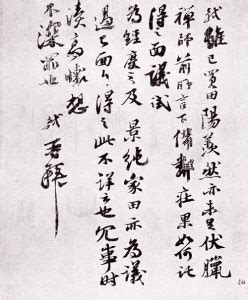 軾雖已買田陽羨然亦未足伏臘
禪師前所言下備鄰莊果如何託
得之面議試
為經度之及 景純家田亦為議
過已面白得之此不詳云也冗事時
瀆高聽想
不深罪也 軾再拜